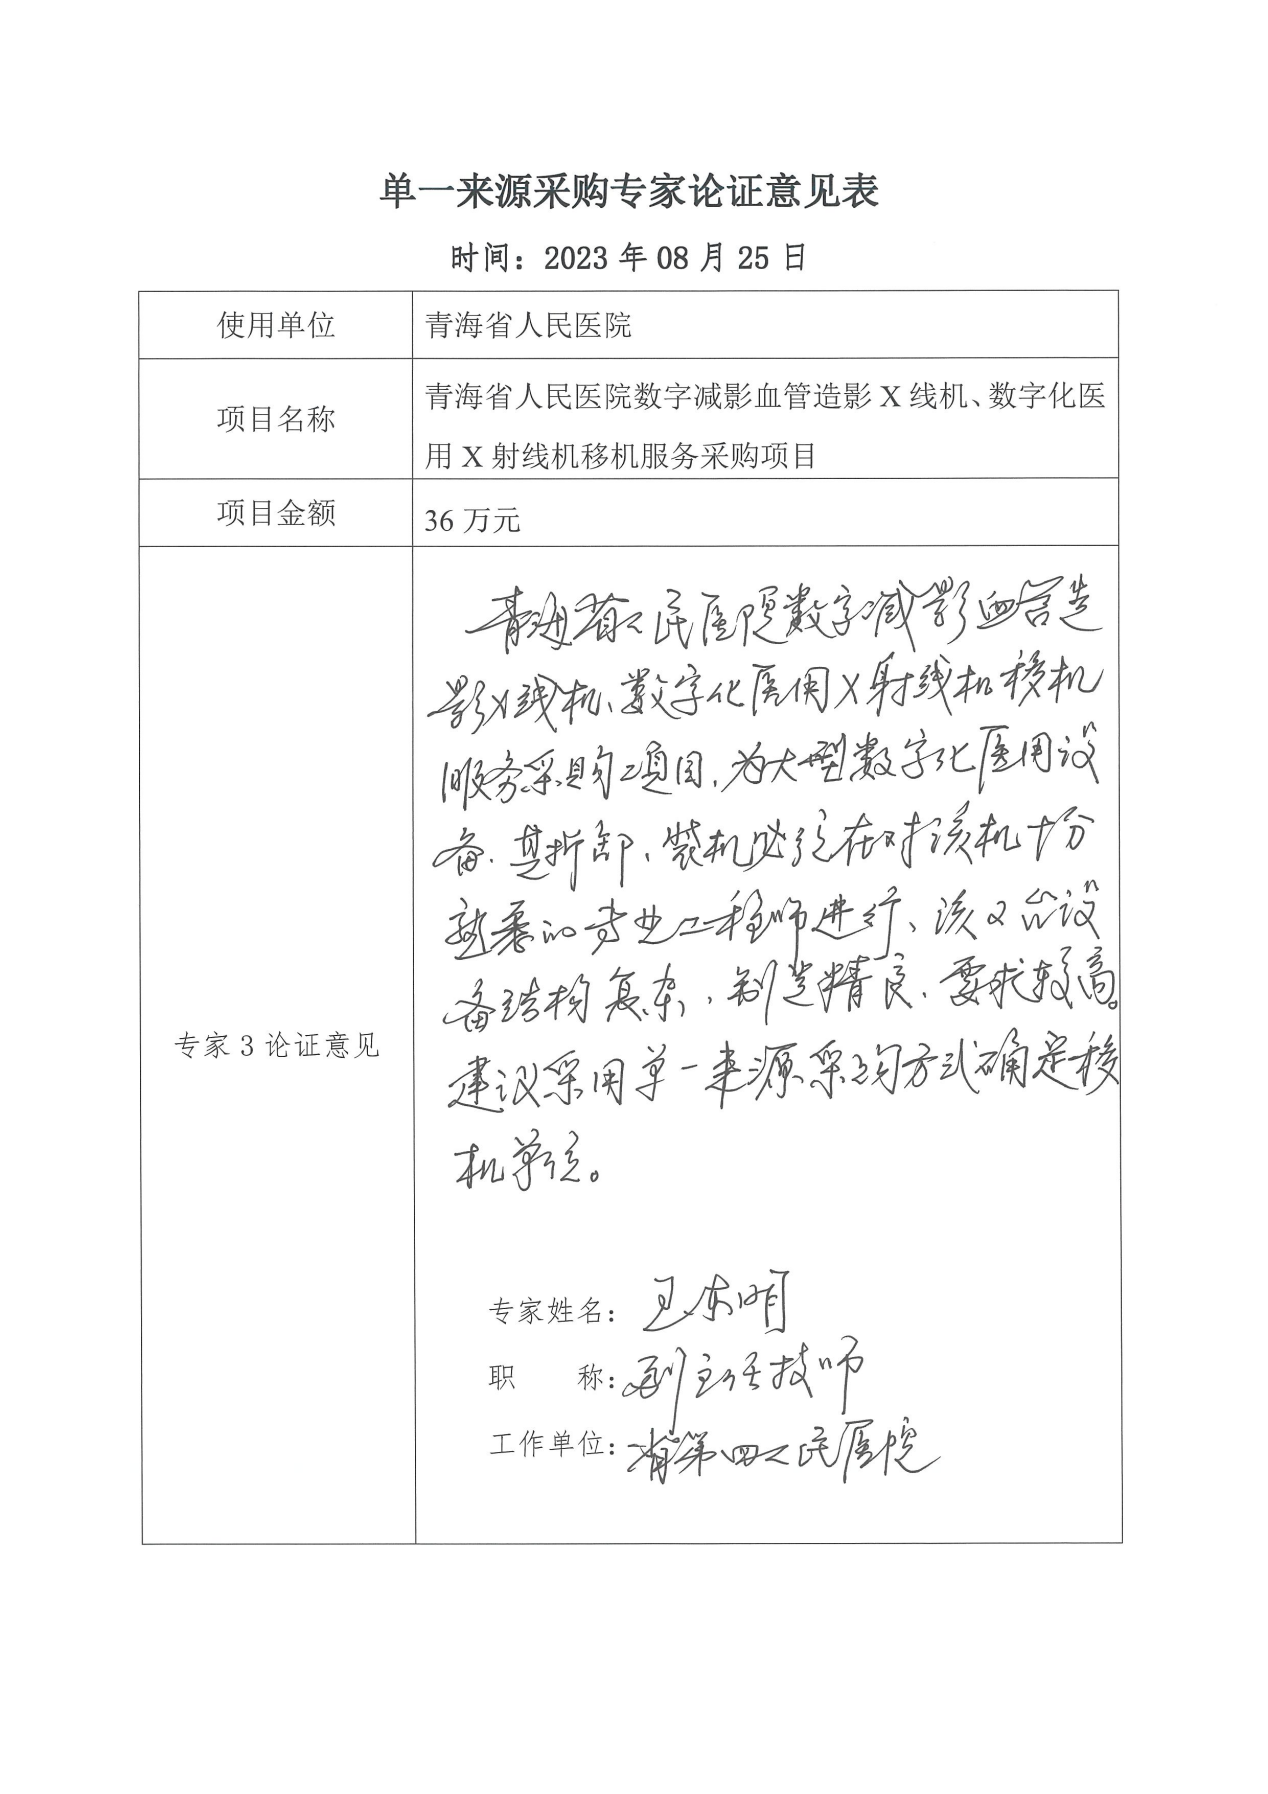 单一来源采购专家论证意见表
时间：2023 年 08 月 25 日
使用单位
青海省人民医院
项目名称
青海省人民医院数字减影血管造影 X 线机、数字化医
用 X 射线机移机服务采购项目
项目金额
36 万元
专家 3 论证意见
青海省人民医院数字减影血管造
影X线机、数字化医用X射线机移机
服务采购项目，为大型数字化医用设
备．其拆卸、装机必须在对该机十分
熟悉的专业工程师进行、该2台设
备结构复杂，制造精良、要求较高。
建议采用单一来源采购方式确定移
机单位。
专家姓名：王东明
职　　称：副主任技师
工作单位：省第四人民医院